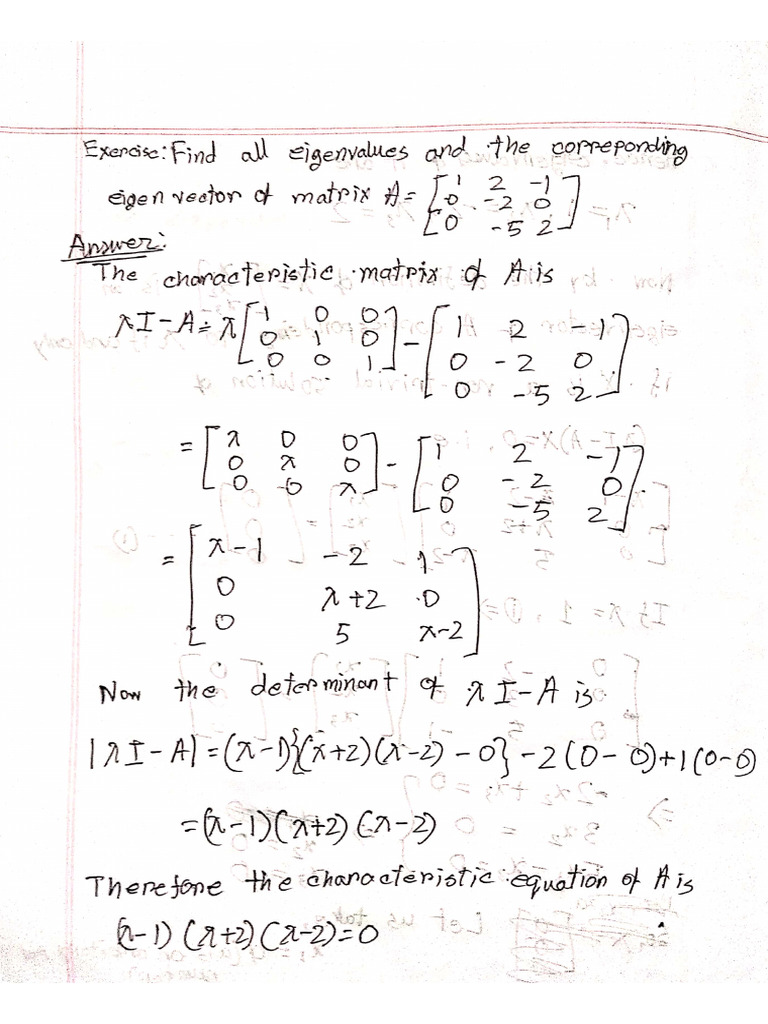 Exercise: Find all eigenvalues and the correponding
eigen vector of matrix A = [1 2 -1
0 -2 0
0 -5 2]
Answer:
The characteristic matrix of A is
λI-A = λ[1 0 0
0 1 0
0 0 1] - [1 2 -1
0 -2 0
0 -5 2]
= [λ 0 0
0 λ 0
0 0 λ] - [1 2 -1
0 -2 0
0 -5 2]
= [λ-1 -2 1
0 λ+2 0
0 5 λ-2]
Now the determinant of λI-A is
|λI-A| = (λ-1){(λ+2)(λ-2) - 0} - 2(0-0) + 1(0-0)
= (λ-1)(λ+2)(λ-2)
Therefore the characteristic equation of A is
(λ-1)(λ+2)(λ-2)=0